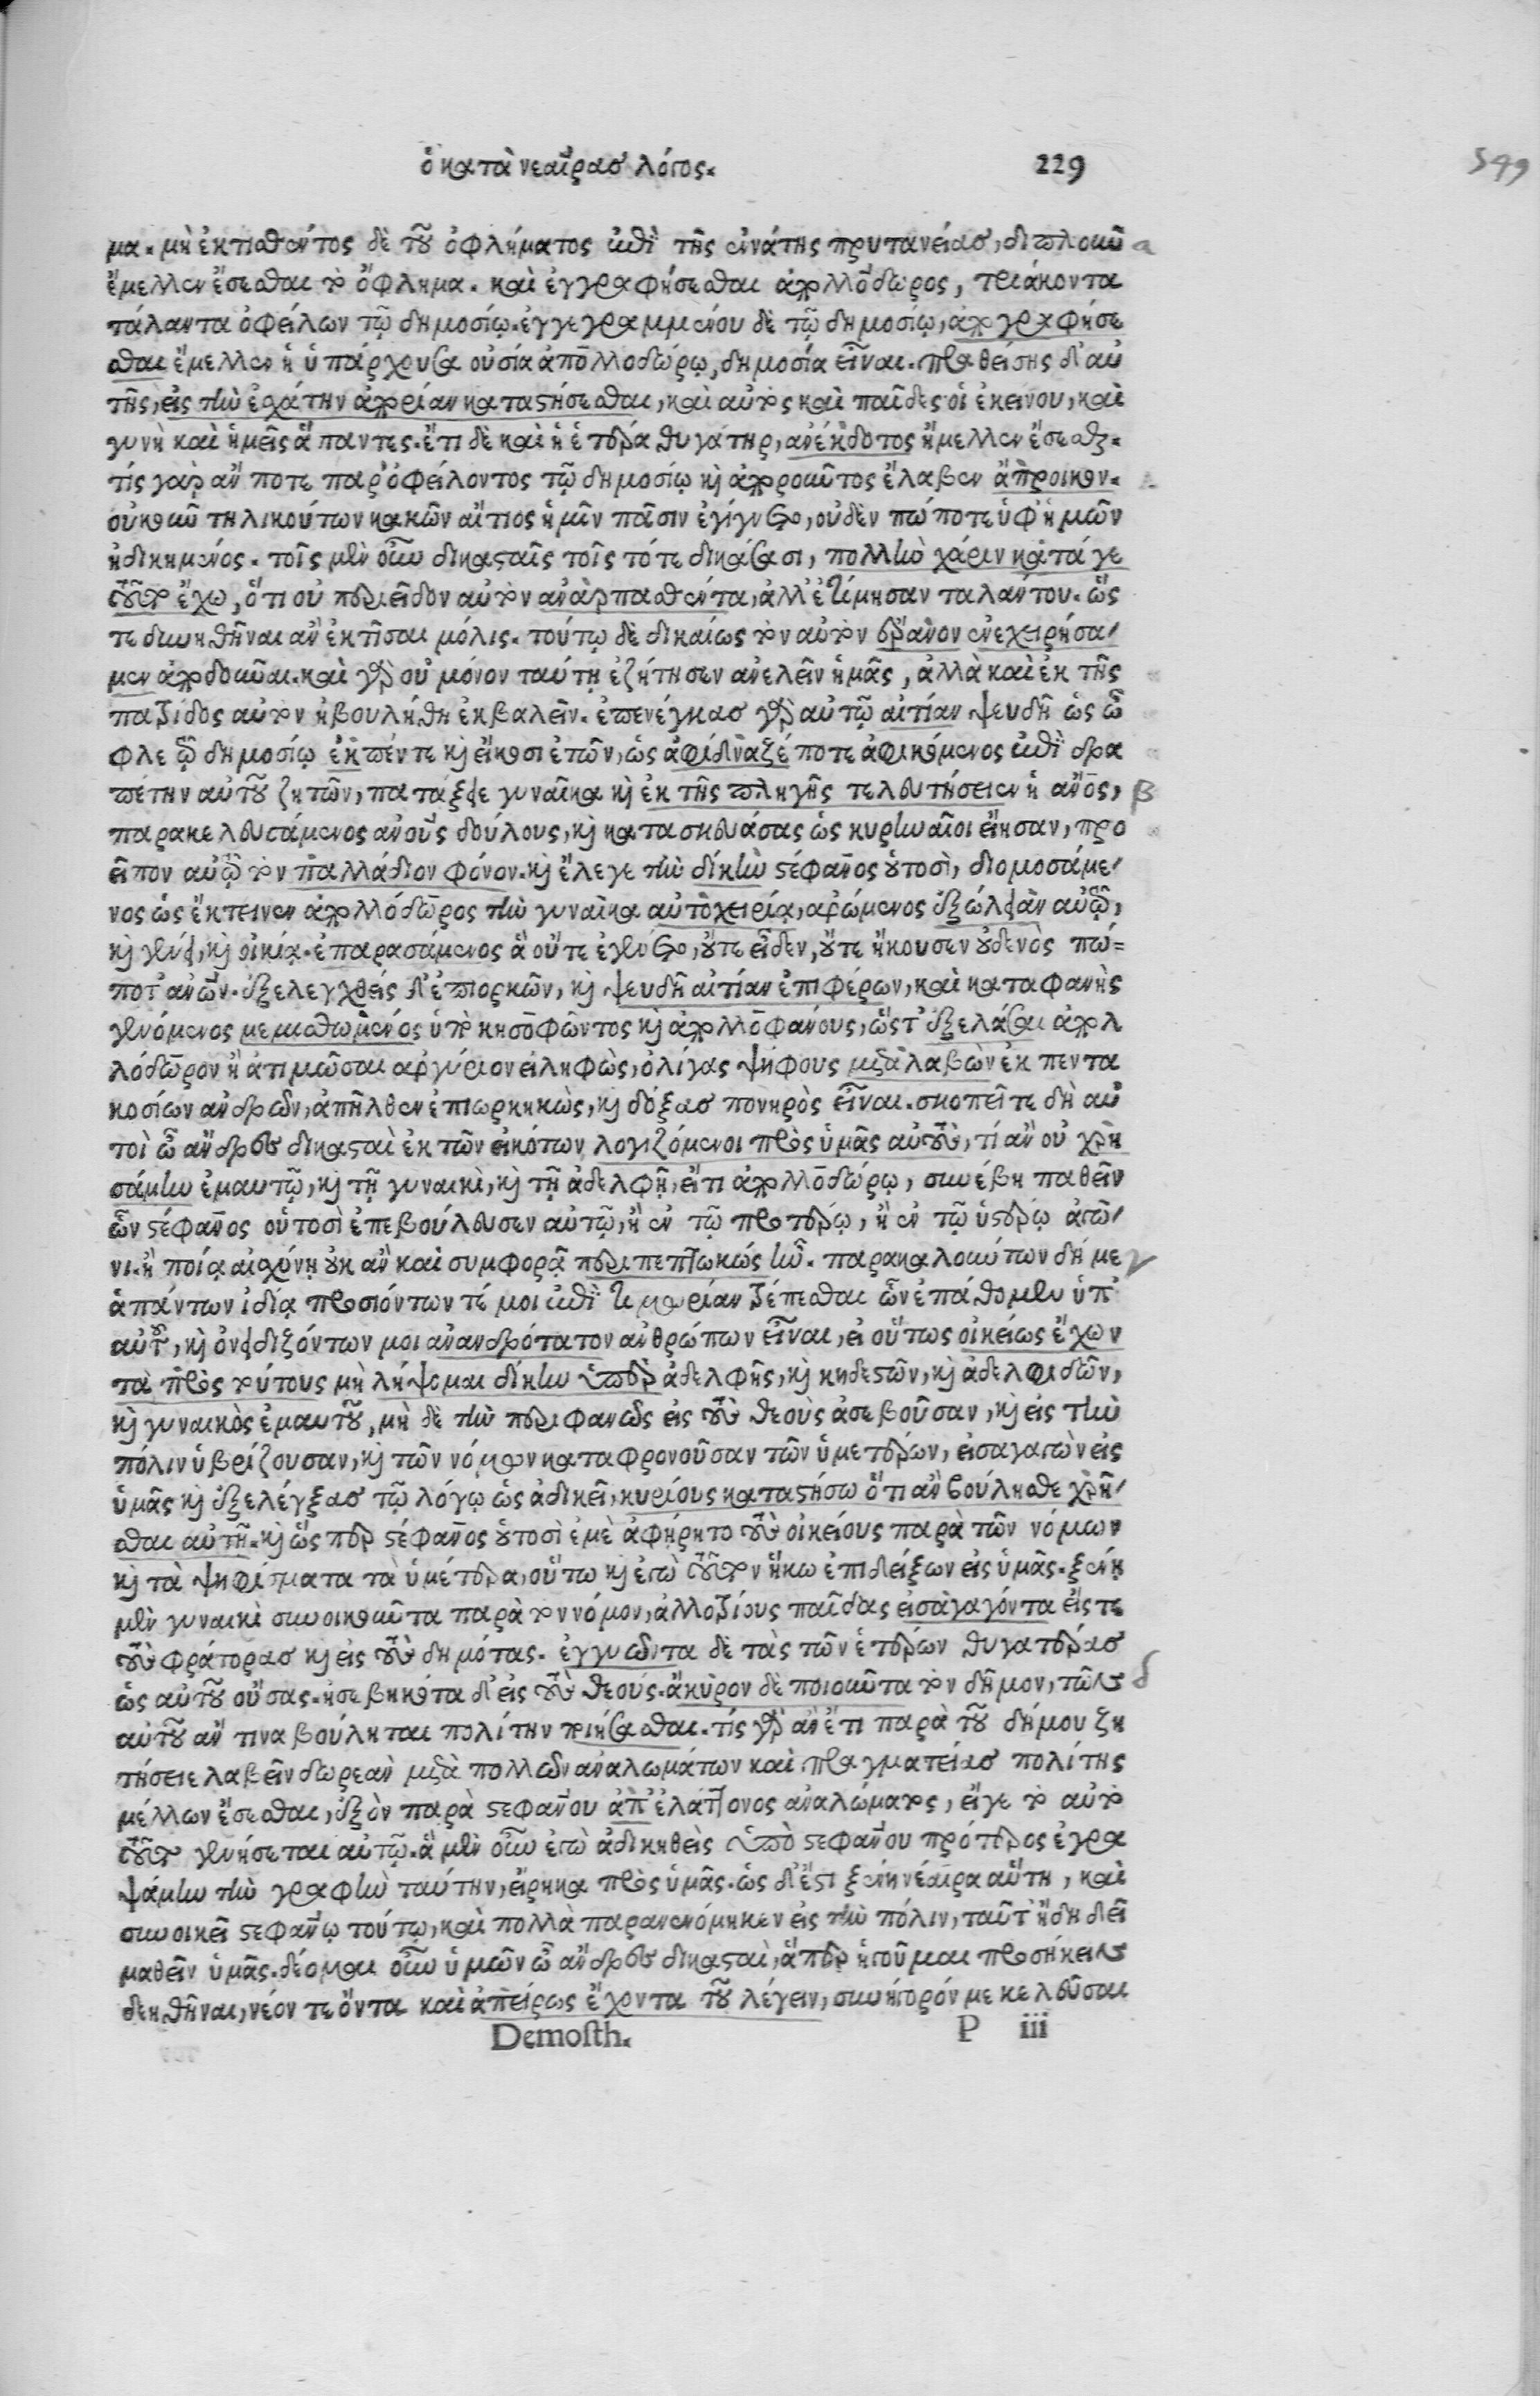 ὁ κατὰ νεαίρας λόγος. 229
549
μα. μὴ ἐκτισθέντος δὲ τοῦ ὀφλήματος ἐπὶ τῆς ἐνάτης πρυτανείας, διπλοῦν
ἔμελλεν ἔσεσθαι τὸ ὄφλημα. καὶ ἐγγραφήσεσθαι ἀπολλόδωρος, τριάκοντα
τάλαντα ὀφείλων τῷ δημοσίῳ. ἐγγεγραμμένου δὲ τῷ δημοσίῳ, ἀπογραφήσε
σθαι ἔμελλεν ἡ ὑπάρχουσα οὐσία ἀπολλοδώρῳ, δημοσία εἶναι. πραθείσης δ' αὐ
τῆς, εἰς τὴν ἐσχάτην ἀπορίαν καταστήσεσθαι, καὶ αὐτὸς καὶ παῖδες οἱ ἐκείνου, καὶ
γυνὴ καὶ ἡμεῖς ἅπαντες. ἔτι δὲ καὶ ἡ ἑτέρα θυγάτηρ, ἀνέκδοτος ἤμελλεν ἔσεσθαι.
τίς γὰρ ἄν ποτε παρ' ὀφείλοντος τῷ δημοσίῳ καὶ ἀποροῦντος ἔλαβεν ἄπροικον.
οὐκοῦν τηλικούτων κακῶν αἴτιος ἡμῖν πᾶσιν ἐγίγνετο, οὐδὲν πώποτε ὑφ' ἡμῶν
ἠδικημένος. τοῖς μὲν οὖν δικασταῖς τοῖς τότε δικάσασι, πολλὴν χάριν κατά γε
τοῦτο ἔχω, ὅτι οὐ περιεῖδον αὐτὸν ἀναρπασθέντα, ἀλλ' ἐτίμησαν ταλάντου. ὥς
τε δυνηθῆναι ἂν ἐκτῖσαι μόλις. τούτῳ δὲ δικαίως τὸν αὐτὸν ἔρανον ἐνεχειρήσα
μεν ἀποδοῦναι. καὶ γὰρ οὐ μόνον ταύτῃ ἐζήτησεν ἀνελεῖν ἡμᾶς, ἀλλὰ καὶ ἐκ τῆς
πατρίδος αὐτὸν ἠβουλήθη ἐκβαλεῖν. ἐπενέγκας γὰρ αὐτῷ αἰτίαν ψευδῆ ὡς ὦ
φλε τῷ δημοσίῳ ἐκ πέντε καὶ εἴκοσι ἐτῶν, ὡς ἀφίδναζέ ποτε ἀφικόμενος ἐπὶ δρα
πέτην αὐτοῦ ζητῶν, πατάξειε γυναῖκα καὶ ἐκ τῆς πληγῆς τελευτήσειεν ἡ ἄνος,
παρακελευσάμενος ἀνοὺς δούλους, καὶ κατασκευάσας ὡς κυρηναῖοι εἴησαν, προ
εῖπον αὐτῷ τὸν παλλάδιον φόνον. καὶ ἔλεγε τὴν δίκην στέφανος οὑτοσὶ, διομοσάμε
νος ὡς ἔκτεινεν ἀπολλόδωρος τὴν γυναῖκα αὐτοχειρίᾳ, ἀρώμενος ἐξώλειαν αὐτῷ,
καὶ γένει, καὶ οἰκίᾳ. ἐπαρασάμενος ἃ οὔτε ἐγένετο, οὔτε εἶδεν, οὔτε ἤκουσεν οὐδενὸς πώ-
ποτ' ἀνων. ἐξελεγχθεὶς δ' ἐπιορκῶν, καὶ ψευδῆ αἰτίαν ἐπιφέρων, καὶ καταφανὴς
γενόμενος μεμισθωμένος ὑπὸ κησοφῶντος καὶ ἀπολλοφάνους, ὥστ' ἐξελάσαι ἀπολ
λόδωρον ἢ ἀτιμῶσαι ἀργύριον εἰληφὼς, ὀλίγας ψήφους μεταλαβὼν ἐκ πεντα
κοσίων ἀνδρῶν, ἀπῆλθεν ἐπιωρκηκὼς, καὶ δόξας πονηρὸς εἶναι. σκοπεῖτε δὴ αὐ
τοὶ ὦ ἄνδρες δικασταὶ ἐκ τῶν εἰκότων λογιζόμενοι πρὸς ὑμᾶς αὐτοὺς, τί ἂν οὐ χρη
σάμην ἐμαυτῷ, καὶ τῇ γυναικὶ, καὶ τῇ ἀδελφῇ, εἴ τι ἀπολλοδώρῳ, συνέβη παθεῖν
ὧν στέφανος οὑτοσὶ ἐπεβούλευσεν αὐτῷ, ἢ ἐν τῷ προτέρῳ, ἢ ἐν τῷ ὑστέρῳ ἀγῶ
νι. ἢ ποίᾳ αἰσχύνῃ οὐκ ἂν καὶ συμφορᾷ περιπεπτωκώς ἦν. παρακαλούντων δή με
ἁπάντων ἰδίᾳ προσιόντων τέ μοι ἐπὶ τιμωρίαν τρέπεσθαι ὧν ἐπάθομεν ὑπ'
αὐτοῦ, καὶ ὀνειδιζόντων μοι ἀνανδρότατον ἀνθρώπων εἶναι, εἰ οὕτως οἰκείως ἔχων
τὰ πρὸς τούτους μὴ λήψομαι δίκην ὑπὲρ ἀδελφῆς, καὶ κηδεστῶν, καὶ ἀδελφιδῶν,
καὶ γυναικὸς ἐμαυτοῦ, μὴ δὲ τὴν περιφανῶς εἰς τοὺς θεοὺς ἀσεβοῦσαν, καὶ εἰς τὴν
πόλιν ὑβρίζουσαν, καὶ τῶν νόμων καταφρονοῦσαν τῶν ὑμετέρων, εἰσαγαγὼν εἰς
ὑμᾶς καὶ ἐξελέγξας τῷ λόγῳ ὡς ἀδικεῖ, κυρίους καταστήσω ὅτι ἂν βούλησθε χρῆ
σθαι αὐτῇ. καὶ ὥσπερ στέφανος οὑτοσὶ ἐμὲ ἀφῄρητο τοὺς οἰκείους παρὰ τῶν νόμων
καὶ τὰ ψηφίσματα τὰ ὑμέτερα, οὕτω καὶ ἐγὼ τοῦτον ἥκω ἐπιδείξων εἰς ὑμᾶς. ξένῃ
μὲν γυναικὶ συνοικοῦντα παρὰ τὸν νόμον, ἀλλοτρίους παῖδας εἰσαγαγόντα εἴς τε
τοὺς φράτορας καὶ εἰς τοὺς δημότας. ἐγγυῶντα δὲ τὰς τῶν ἑτέρων θυγατέρας
ὡς αὑτοῦ οὔσας. ἠσεβηκότα δ' εἰς τοὺς θεούς. ἄκυρον δὲ ποιοῦντα τὸν δῆμον, τῶν
αὐτοῦ ἄν τινα βούληται πολίτην ποιήσασθαι. τίς γὰρ ἂν ἔτι παρὰ τοῦ δήμου ζη
τήσειε λαβεῖν δωρεὰν μετὰ πολλῶν ἀναλωμάτων καὶ πραγματείας πολίτης
μέλλων ἔσεσθαι, ἐξὸν παρὰ στεφάνου ἀπ' ἐλάττονος ἀναλώματος, εἴγε τὸ αὐτὸ
τοῦτο γενήσεται αὐτῷ. ἃ μὲν οὖν ἐγὼ ἀδικηθεὶς ὑπὸ στεφάνου πρότερος ἐγρα
ψάμην τὴν γραφὴν ταύτην, εἴρηκα πρὸς ὑμᾶς. ὡς δ' ἔστι ξένη νέαιρα αὕτη, καὶ
συνοικεῖ στεφάνῳ τούτῳ, καὶ πολλὰ παρανενόμηκεν εἰς τὴν πόλιν, ταῦτ' ἤδη δεῖ
μαθεῖν ὑμᾶς. δέομαι οὖν ὑμῶν ὦ ἄνδρες δικασταὶ, ἅπερ ἡγοῦμαι προσήκειν
δεηθῆναι, νέον τε ὄντα καὶ ἀπείρως ἔχοντα τοῦ λέγειν, συνήγορόν με κελεῦσαι
Demosth. P iii